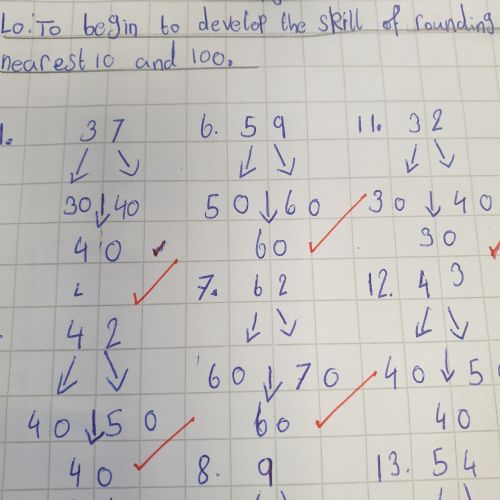 LO: To begin to develop the skill of rounding
nearest 10 and 100.
1. 37 6. 59 11. 32
30 40 50 60 30 40
40 60 30
7. 62 12. 43
42
60 70 40 50
40 50 60 40
40 8. 9 13. 54